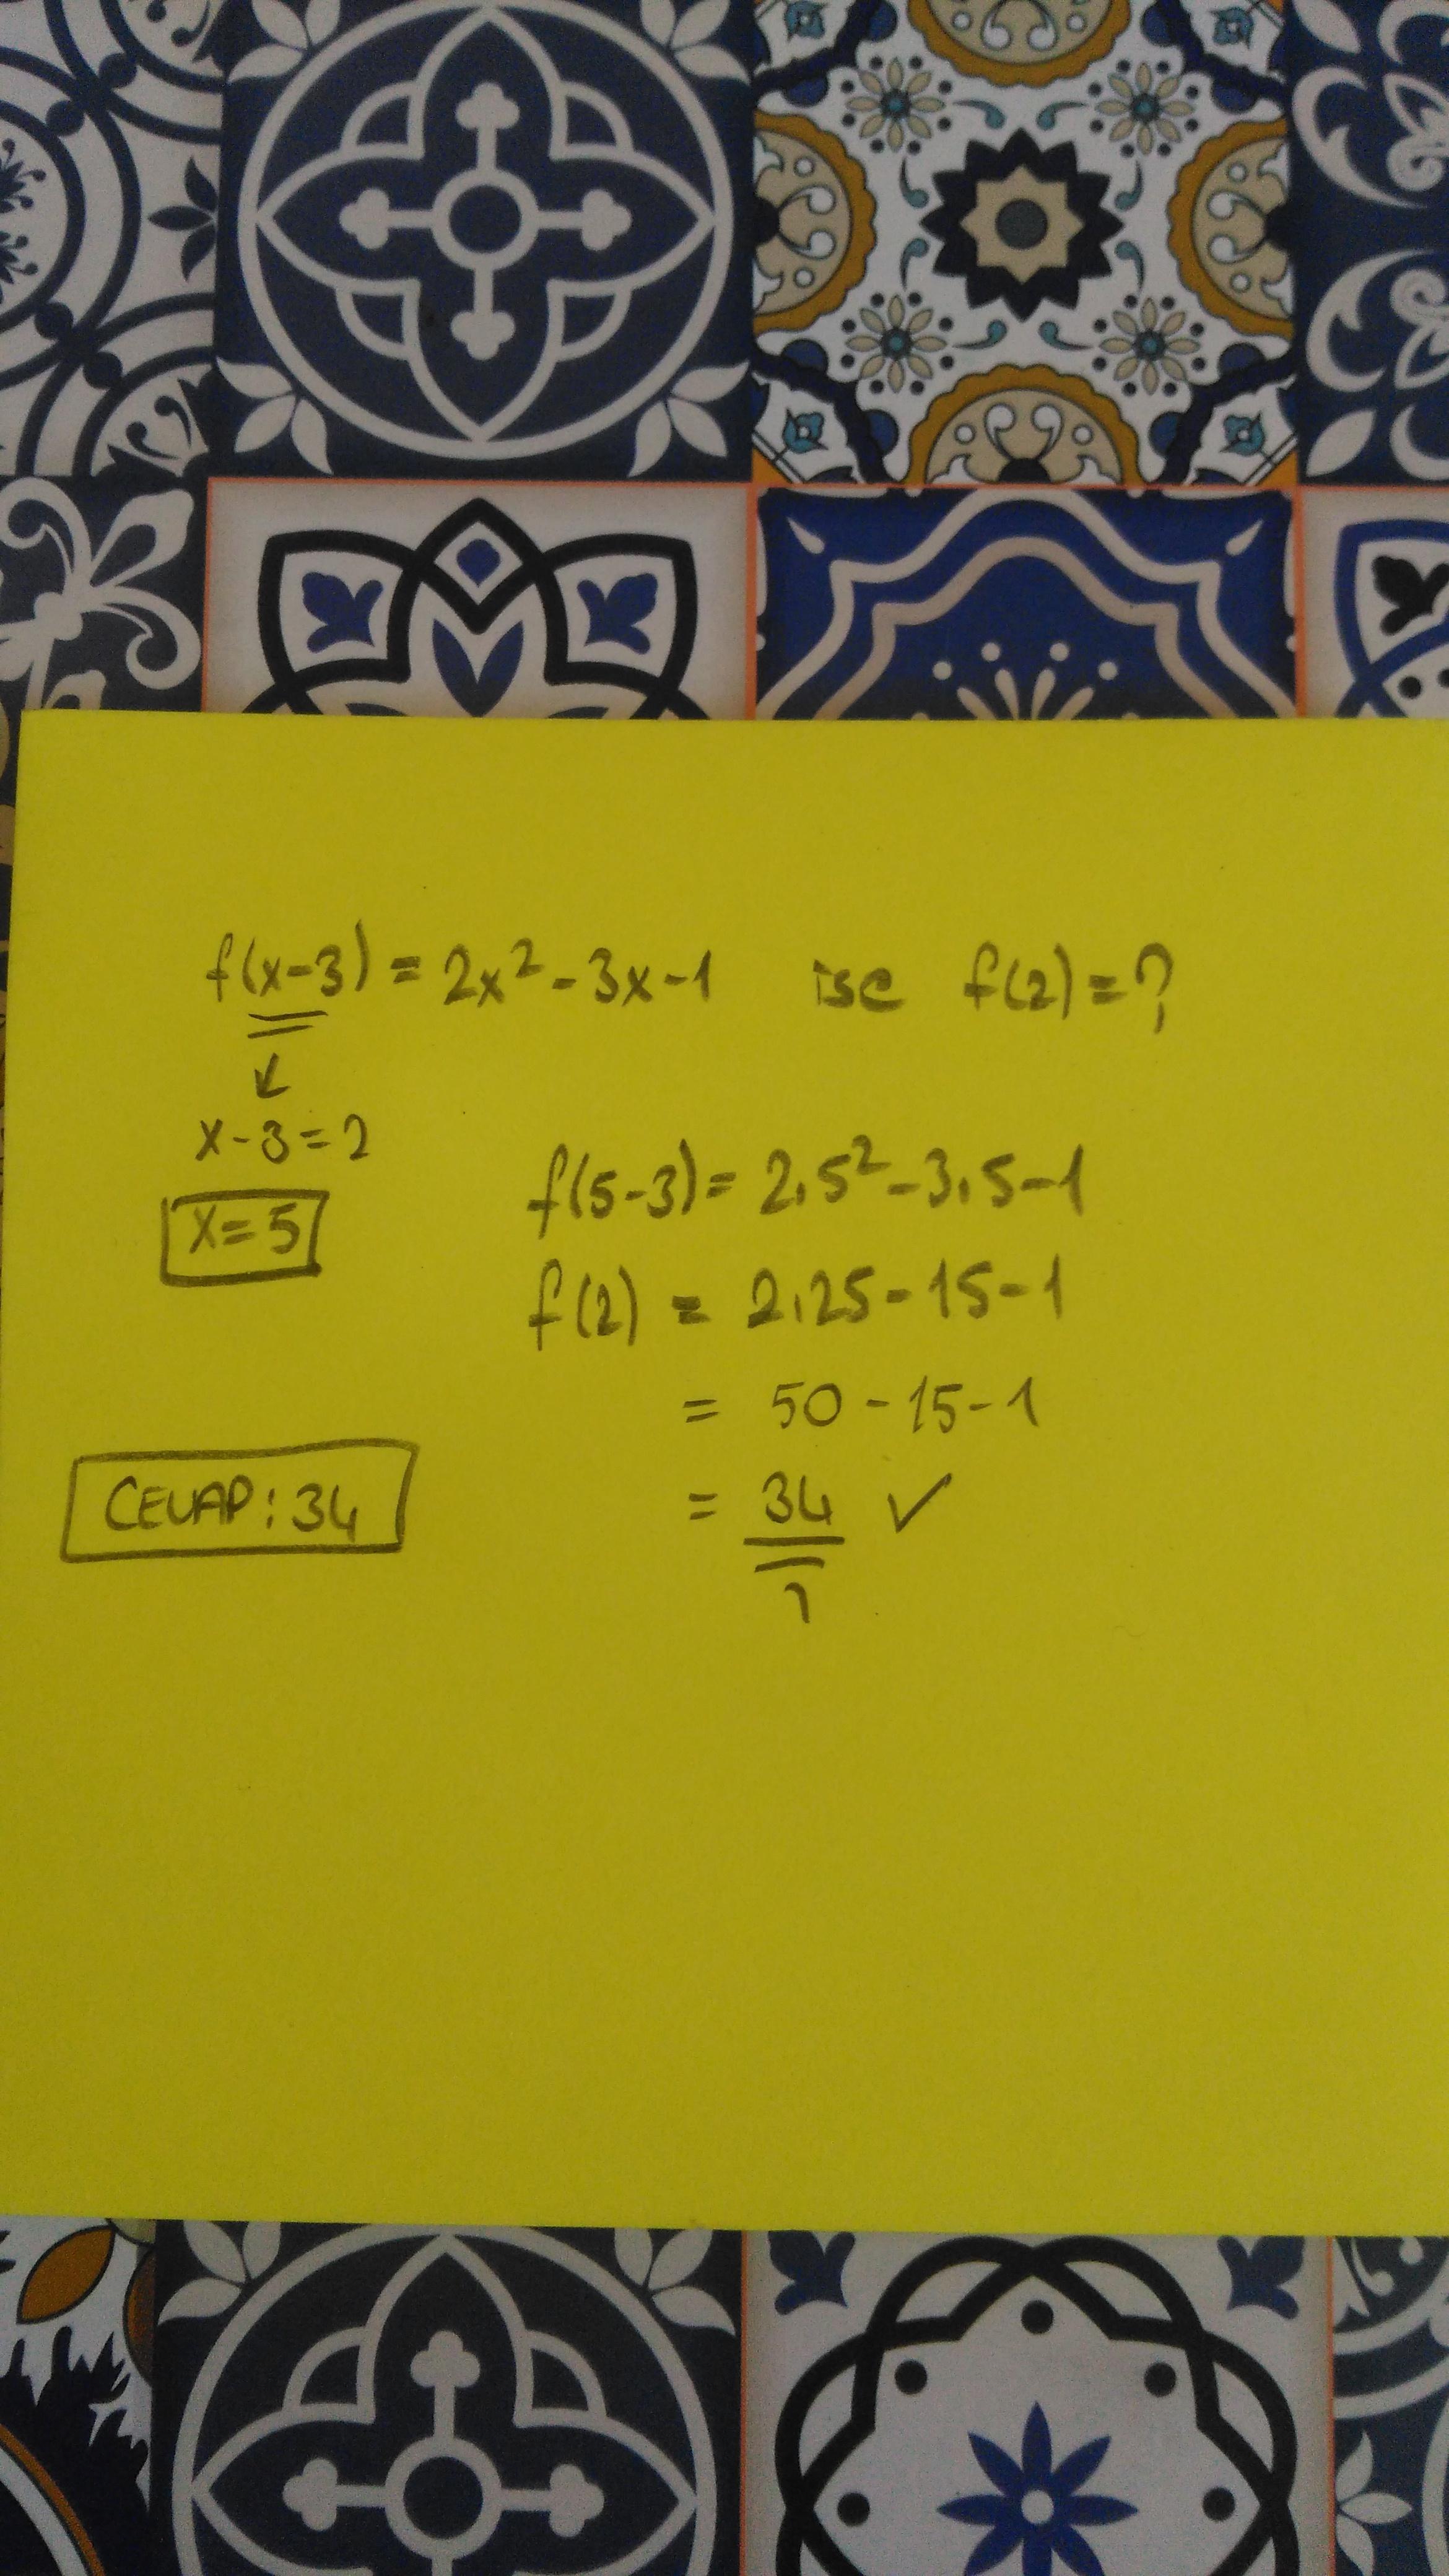 f(x-3) = 2x² - 3x - 1 ise f(2) = ?
x - 3 = 2
x = 5
f(5-3) = 2.5² - 3.5 - 1
f(2) = 2.25 - 15 - 1
= 50 - 15 - 1
= 34 ✓
CEVAP : 34